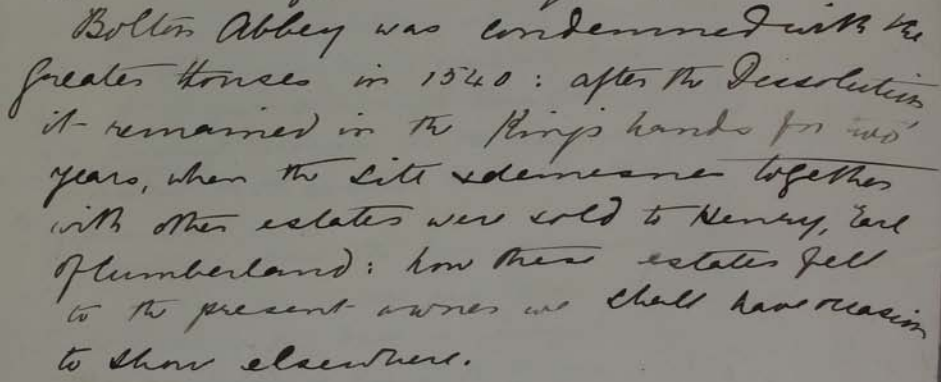 Bolton Abbey was condemned with the
greater Houses in 1540: after the Dissolution
it remained in the King's hands for two
years, when the site & demesnes together
with other estates were sold to Henry, Earl
of Cumberland: how these estates fell
to the present owner we shall have occasion
to show elsewhere.